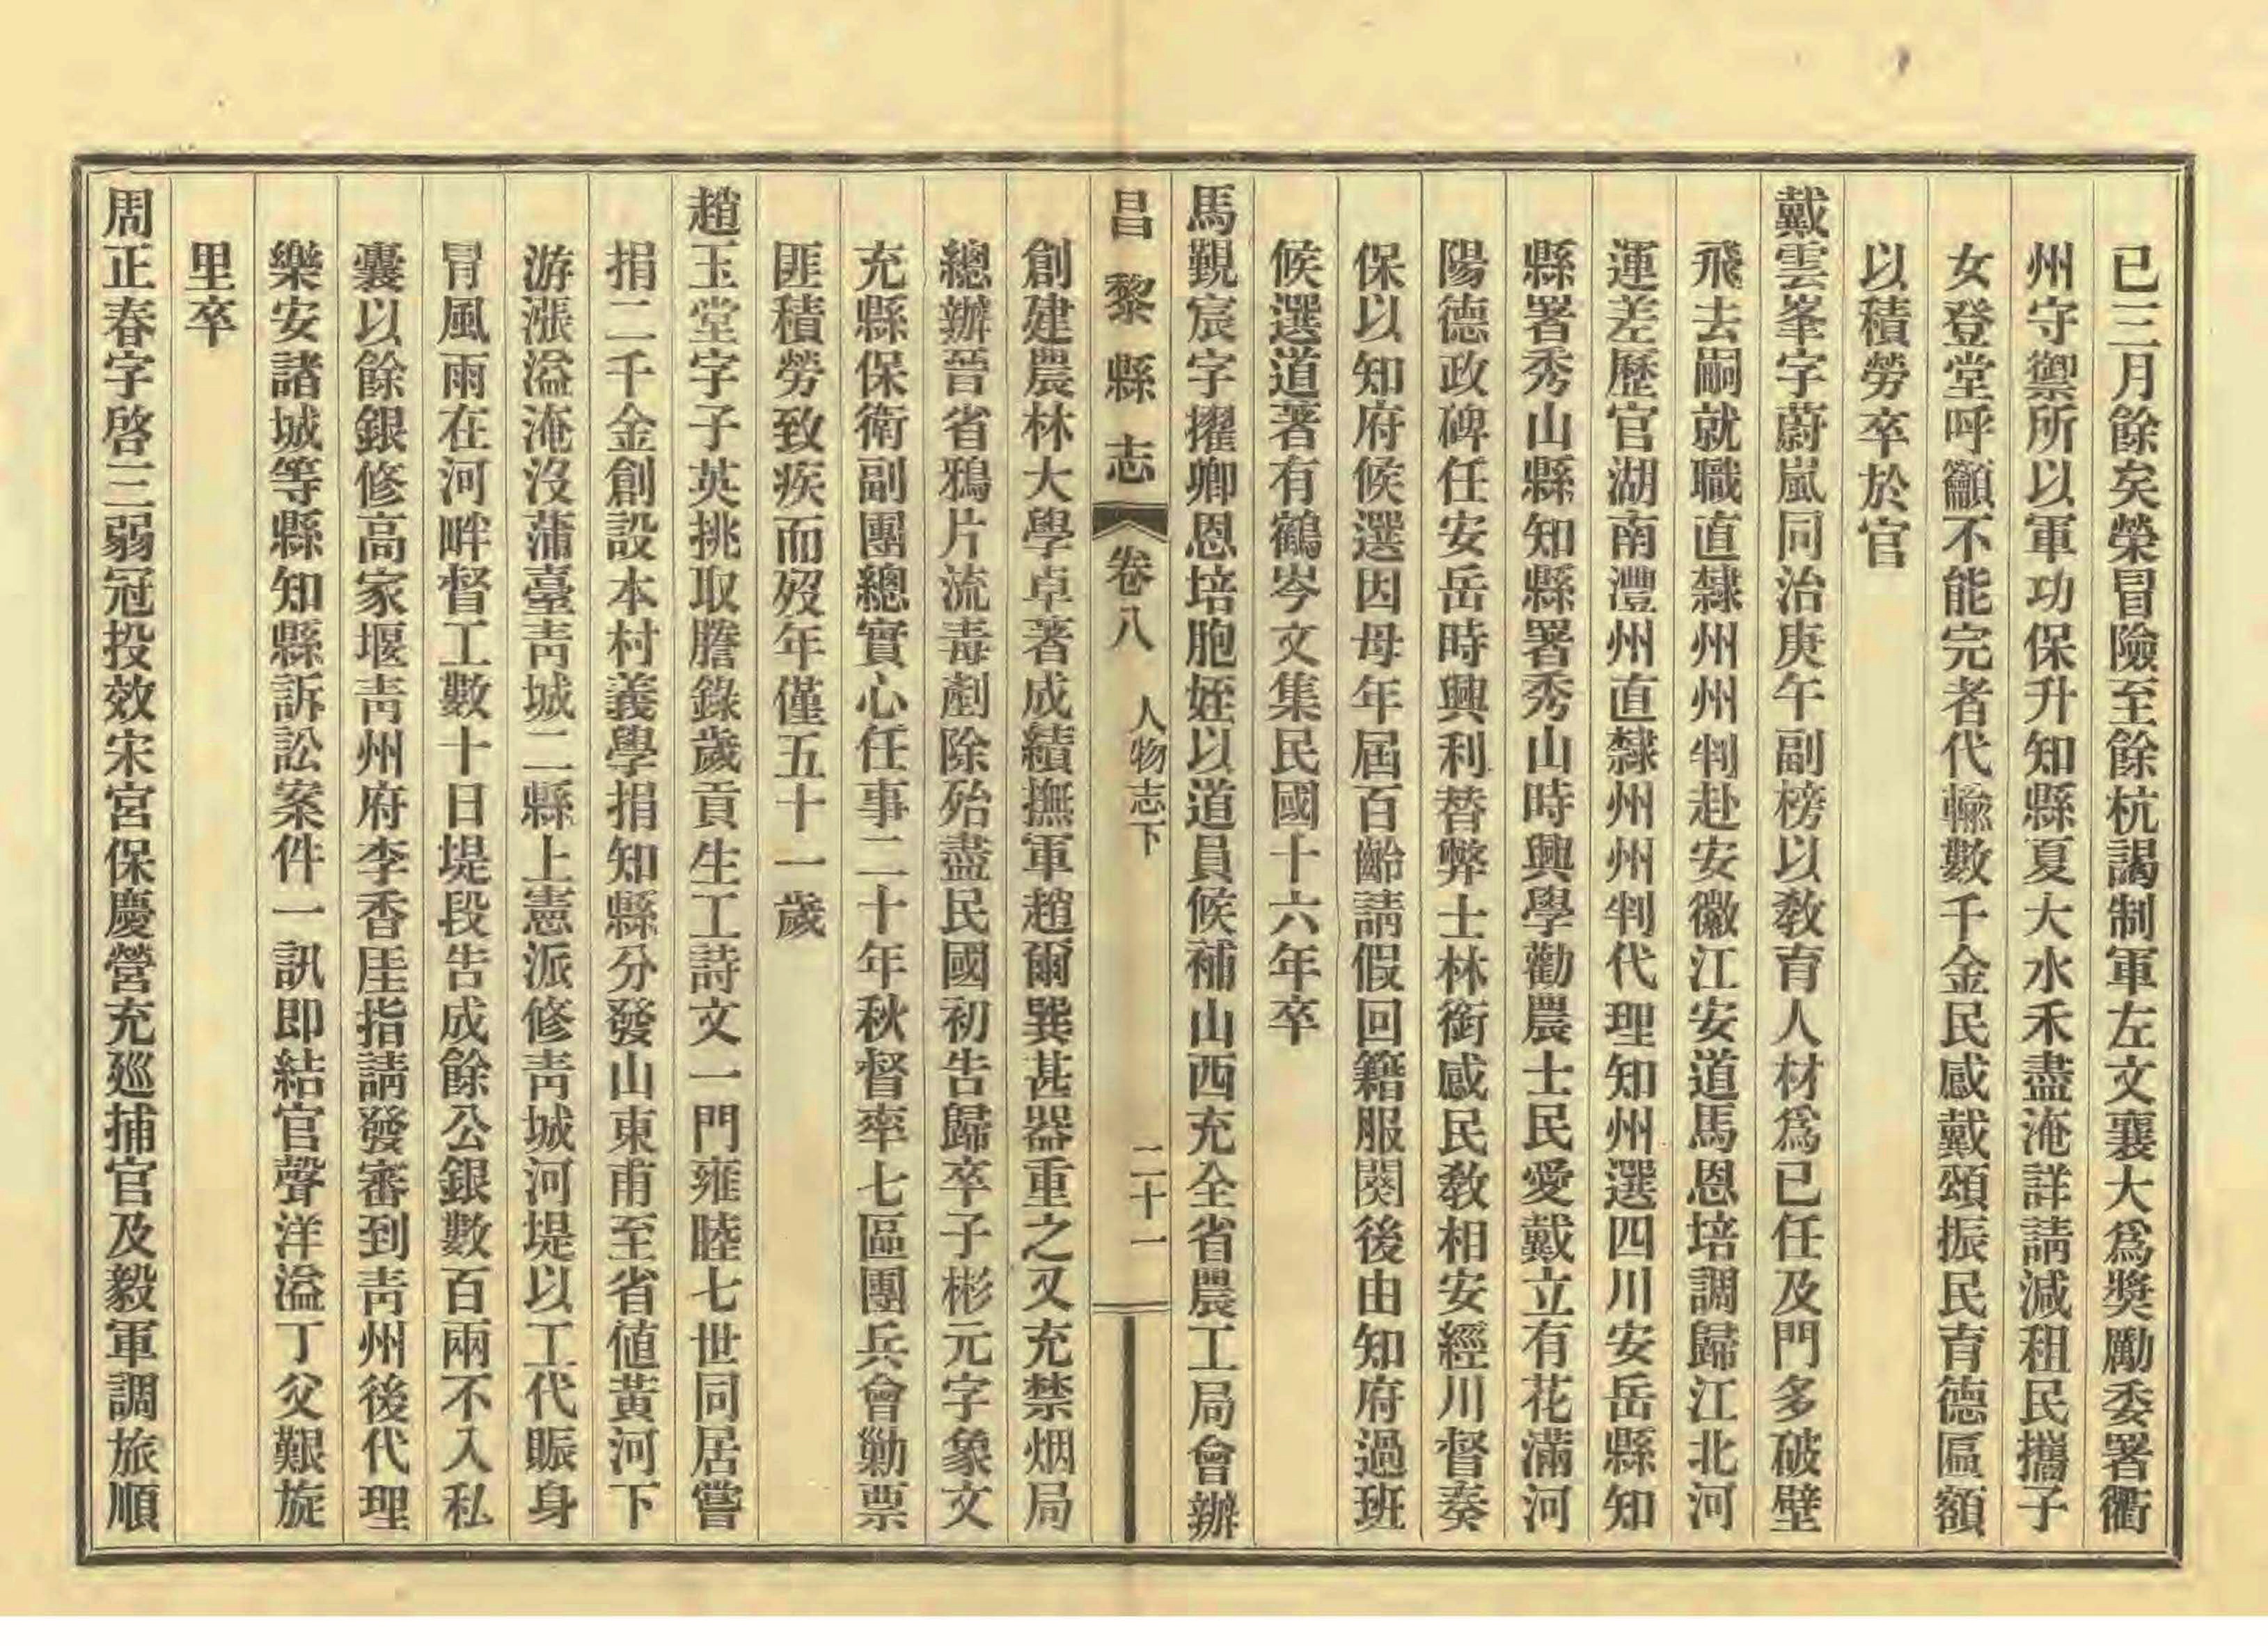 已三月餘矣榮冒險至餘杭謁制軍左文襄大為獎勵委署衢
州守禦所以軍功保升知縣夏大水禾盡淹詳請減租民攜子
女登堂呼籲不能完者代輸數千金民感戴頌振民育德區額
以積勞卒於官
戴雲峯字蔚嵐同治庚午副榜以教育人材爲已任及門多破壁
飛去嗣就職直隸州州判赴安徽江安道馬恩培調歸江北河
運差歷官湖南澧州直隸州州判代理知州選四川安岳縣知
縣署秀山縣知縣署秀山時興學勸農士民愛戴立有花滿河
陽德政碑任安岳時興利替弊士林銜感民教相安經川督奏
保以知府候選因母年屆百齡請假回籍服闋後由知府過班
候選道著有鶴岑文集民國十六年卒
馬覲宸字擢卿恩培胞姪以道員候補山西充全省農工局會辦
昌黎縣志 卷八 人物志下 二十一
創建農林大學卓著成績撫軍趙爾巽甚器重之又充禁烟局
總辦晉省鴉片流毒剷除殆盡民國初告歸卒子彬元字象文
充縣保衛副團總實心任事二十年秋督率七區團兵會勦票
匪積勞致疾而歿年僅五十一歲
趙玉堂字子英挑取謄錄歲貢生工詩文一門雍睦七世同居嘗
捐二千金創設本村義學捐知縣分發山東甫至省値黃河下
游漲溢淹沒蒲臺靑城二縣上憲派修靑城河堤以工代賑身
冒風雨在河畔督工數十日堤段告成餘公銀數百兩不入私
囊以餘銀修高家堰靑州府李香厓指請發審到靑州後代理
樂安諸城等縣知縣訴訟案件一訊即結官聲洋溢丁父艱旋
里卒
周正春字啓三弱冠投效宋宮保慶營充廵捕官及毅軍調旅順